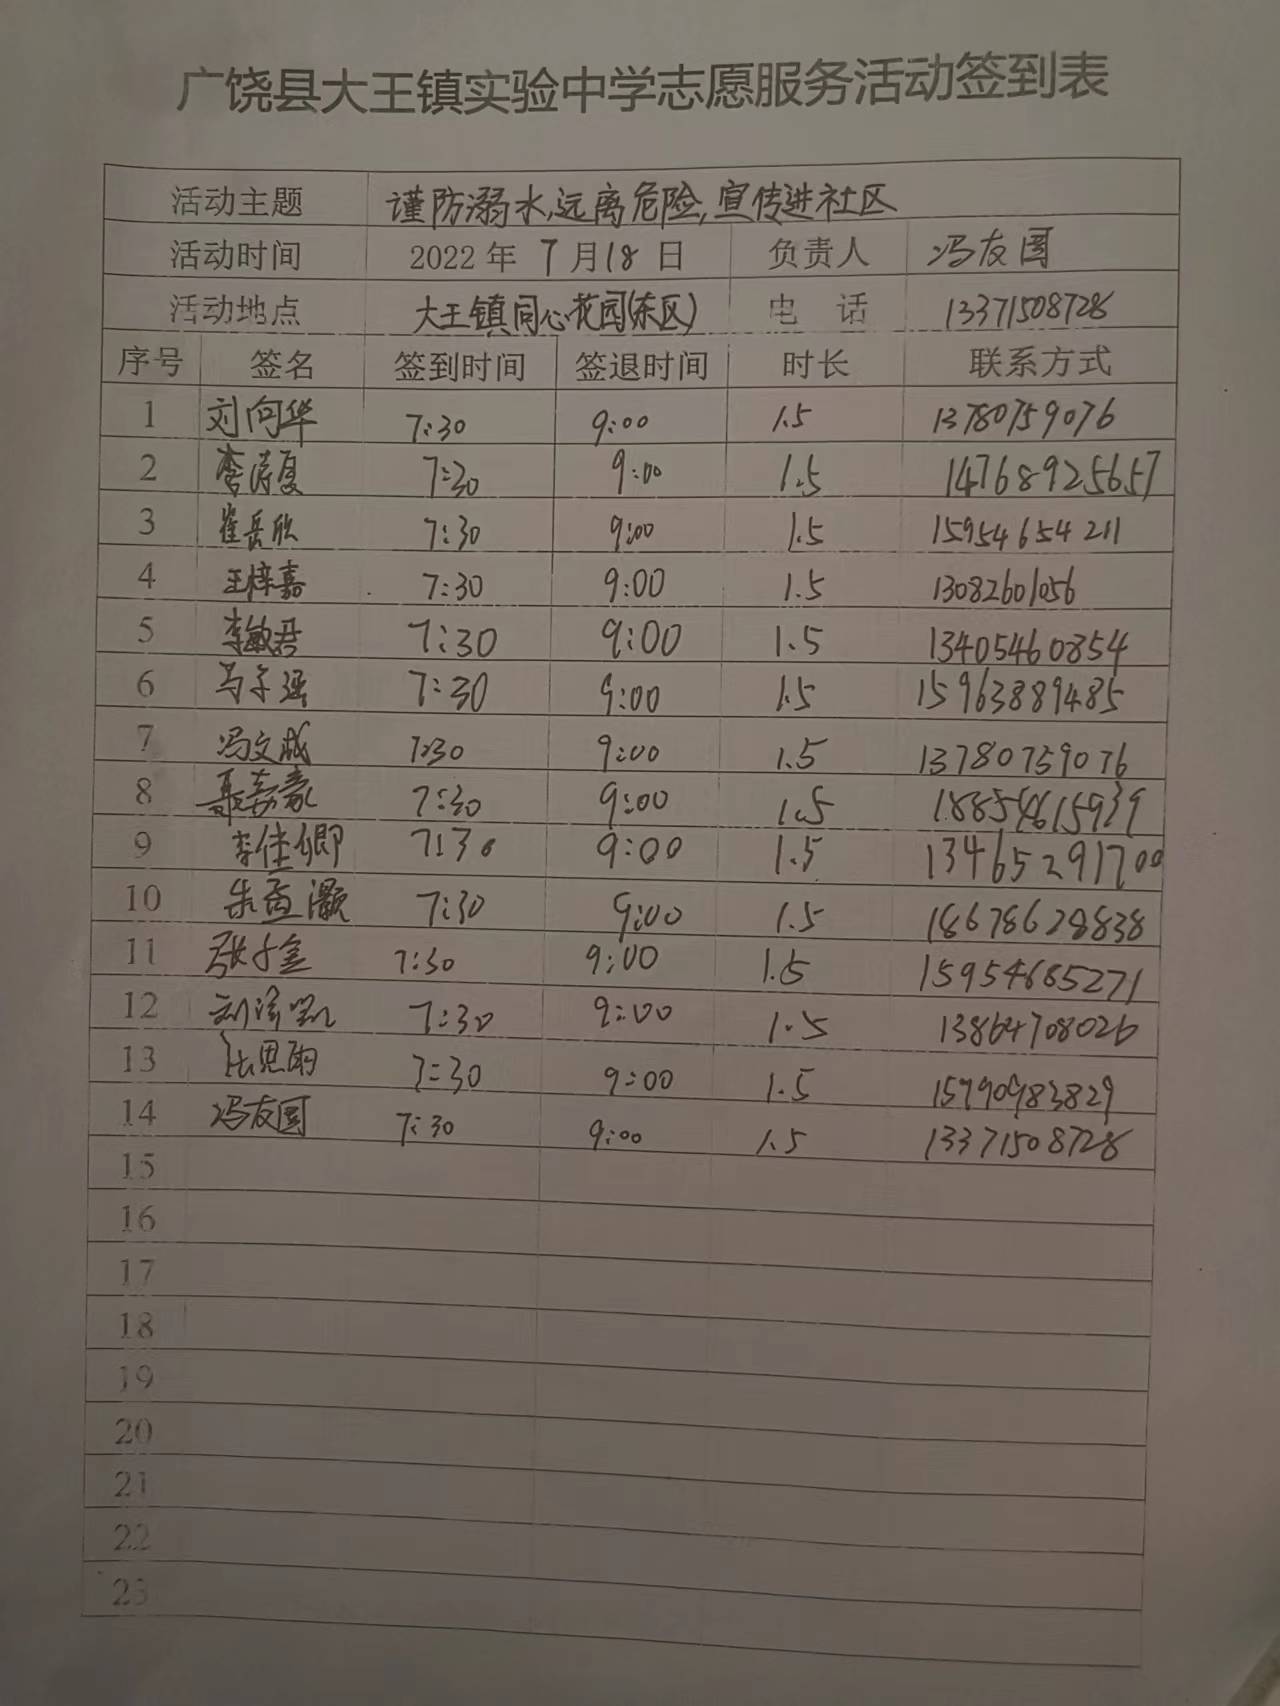 广饶县大王镇实验中学志愿服务活动签到表
活动主题 谨防溺水,远离危险,宣传进社区
活动时间 2022年7月18日 负责人 冯友国
活动地点 大王镇同心花园(东区) 电 话 13371508728
序号 签名 签到时间 签退时间 时长 联系方式
1 刘向华 7:30 9:00 1.5 13780759076
2 李涛夏 7:30 9:00 1.5 14768925657
3 崔岳欣 7:30 9:00 1.5 15954654211
4 王梓嘉 7:30 9:00 1.5 13082601056
5 李敏君 7:30 9:00 1.5 13405460854
6 7:30 9:00 1.5 15963889485
7 冯文成 7:30 9:00 1.5 13780759076
8 聂嘉豪 7:30 9:00 1.5 18854615939
9 李佳卿 7:30 9:00 1.5 13465291700
10 朱孟灏 7:30 9:00 1.5 18678628838
11 张子鑫 7:30 9:00 1.5 15954685271
12 7:30 9:00 1.5 13864708026
13 张思雨 7:30 9:00 1.5 15790983829
14 冯友国 7:30 9:00 1.5 13371508728
15
16
17
18
19
20
21
22
23